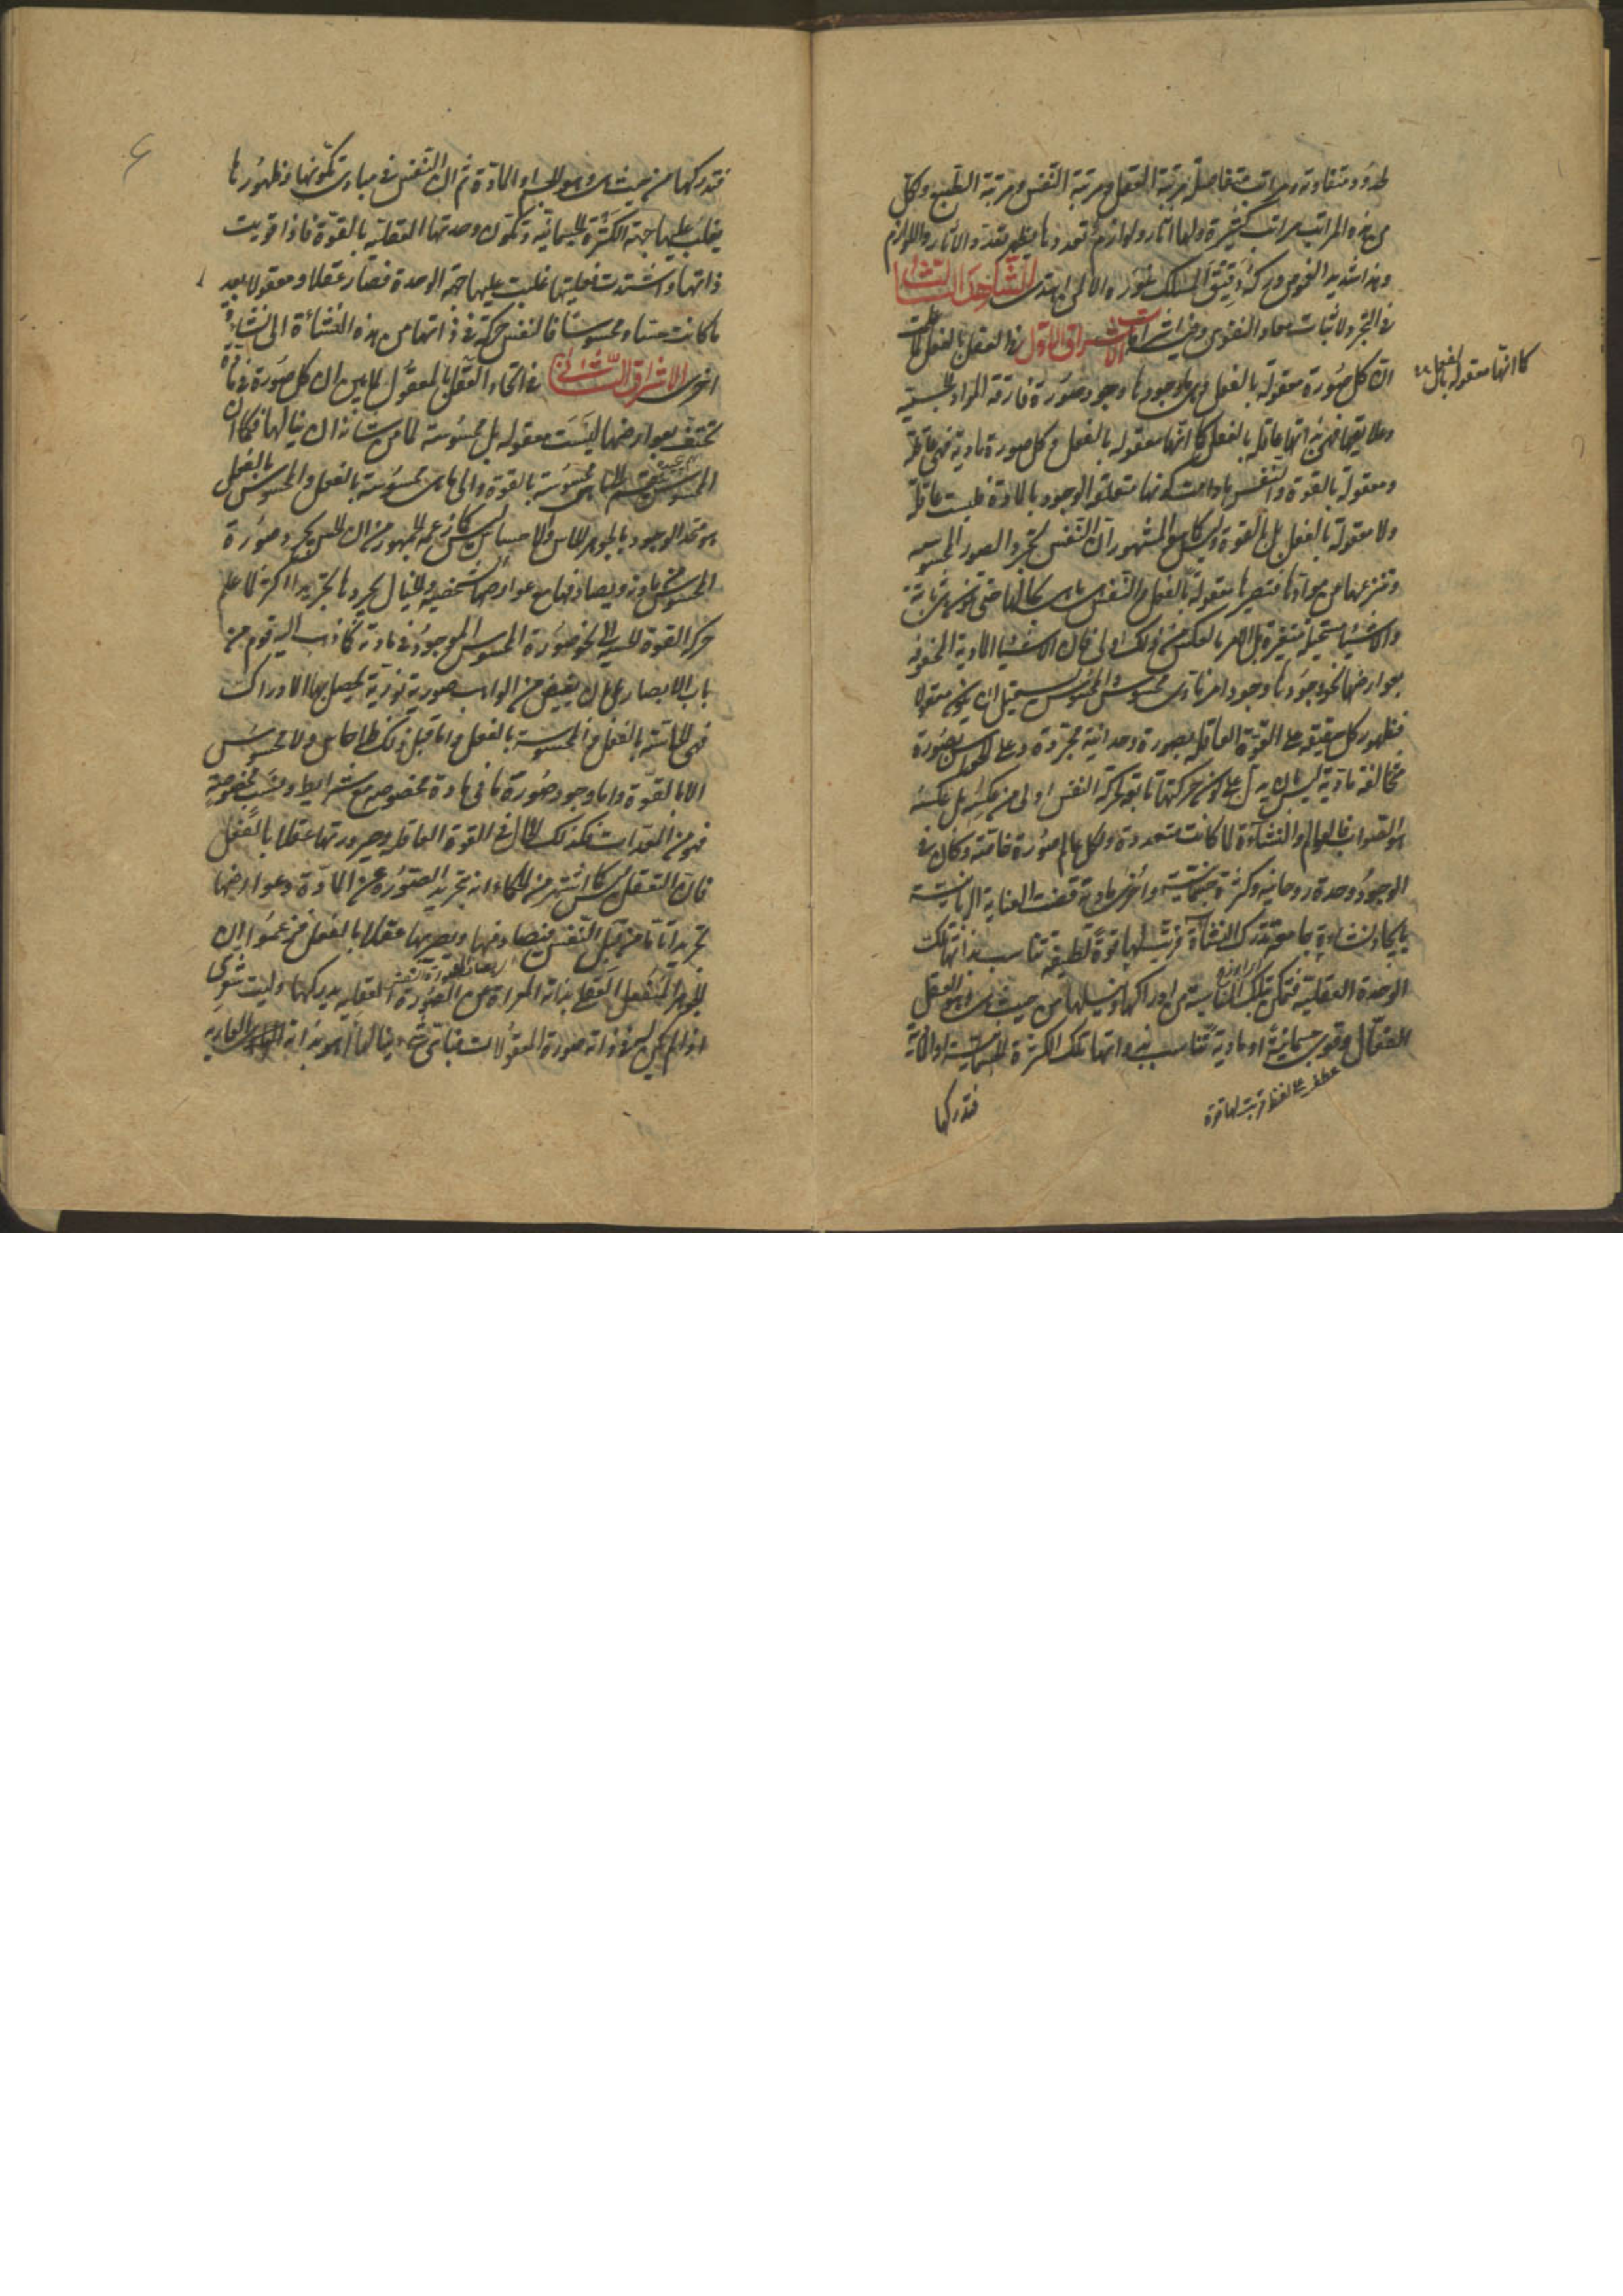 لحدود متفاوتة ومراتب متفاضلة مرتبة العقل ومرتبة النفس ومرتبة الطبع ولكل
من هذه المراتب مراتب كثيرة ولها آثار ولوازم تعددها يظهر بتعدد الآثار واللوازم
وهذا شديد الغموض دركه دقيق المسلك غوره الا لمن اهتدى الشاهد الثالث
في التجرد لاثبات معاد النفوس وفيه اشراقات الاشراق الاول في العقل بالفعل
ان كل صورة معقولة بالفعل فى وجودها وجود صورة مفارقة المواد الجسمية
وعلايقها فهى بذاتها عاقلة بالفعل كما انها معقولة بالفعل وكل صورة مادية فهى عاقلة
كما انها معقولة بالفعل
ومعقولة بالقوة والنفس مادامت كونها متعلقة الوجود بالمادة فليست عاقلة
ولا معقولة بالفعل بل بالقوة وليس كما هو المشهور ان النفس تجرد الصور المحسوسة
وتنزعها من موادها فتصيرها معقولة بالفعل والنفس هى بحالها حتى تكون هى ثابتة
والاشياء مستحيلة متغيرة بل الامر بالعكس من ذلك اولى فان الاشياء المادية المحفوفة
بعوارضها نحو وجودها وجود امر مادى محسوس والمحسوس يستحيل ان يكون معقولا
فظهور كل حقيقة على القوة العاقلة بصورة وحدانية مجردة وعلى الحواس بصورة
مخالفة مادية ليس يدل على كون حركتها تابعة حركة النفس اولى من عكسه بل عكسه
هو الصواب فالعوالم والنشآت لما كانت متعددة ولكل عالم صورة خاصة وكان فى
الوجود وحدة روحانية وكثرة جسمانية واخرى مادية قضت العناية الربانية
بايجاد نشاءة جامعة تدرك النشآت فرتب لها قوة لطيفة تناسب بذاتها تلك
الوحدة العقلية فتمكن بتلك المناسبة من ادراكها ونيلها من حيث هى وهو العقل
الفعال وقوى جسمانية او مادية تناسب بذواتها تلك الكثرة الجسمانية او المادية
عطف على لفظ فرتب لها قوة
فتدركها
فتدركها من حيث هى وهو الجسم او المادة ثم ان النفس فى مبادى تكونها وظهورها
يغلب عليها جهة الكثرة الجسمانية وتكون وحدتها العقلية بالقوة فاذا قويت
ذاتها واشتدت فعليتها غلبت عليها جهة الوحدة فصار عقلا ومعقولا بعد
ما كانت حسا ومحسوسا فالنفس حركة فى ذاتها من هذه النشأة الى نشاءة
اخرى الاشراق الثانى فى اتحاد العقل بالمعقول لما تبين ان كل صورة فى مادة
تختلف بعوارضها ليست معقولة بل محسوسة لما من شانه ان ينالها فكما ان
المحسوس ينقسم الى ما هى محسوسة بالقوة والى ما هى محسوسة بالفعل والمحسوس بالفعل
هو متحد الوجود بالجوهر الحاس والاحساس ليس كما زعمه الجمهور من ان الحس يجرد صورة
المحسوس من مادته ويصادفها مع عوارضها الشخصية والخيال يجردها تجريدا اكثر لما علم
حركة القوة الحسية الى نحو صورة المحسوس الموجود فى مادته كما ذهب اليه قوم من
باب الابصار بل ان يفيض من الواهب صورية نورية يحصل بها الادراك
فهى الحاسة بالفعل والمحسوسة بالفعل واما قبل ذلك فلا حاس ولا محسوس
الا بالقوة واما وجود صورة ما فى مادة مخصوصة مع شرايط ونسب مخصوصة
فهو من المعدات فكذلك الحال فى القوة العاقلة وصيرورتها عقلا بالفعل
فان التعقل ليس كما اشتهر من الحكماء انه تجريد الصورة عن المادة وعوارضها
تجريدا تاما من قبل النفس فيصادفها ويصيرها عقلا بالفعل فزعموا ان
الجوهر المنفعل العقلى بذاته المعراة من الصورة العقلية يدركها وليت شعرى
اذا لم يكن له فى ذاته صورة المعقولات فباى شئ ينالها أهو بذاته العارية